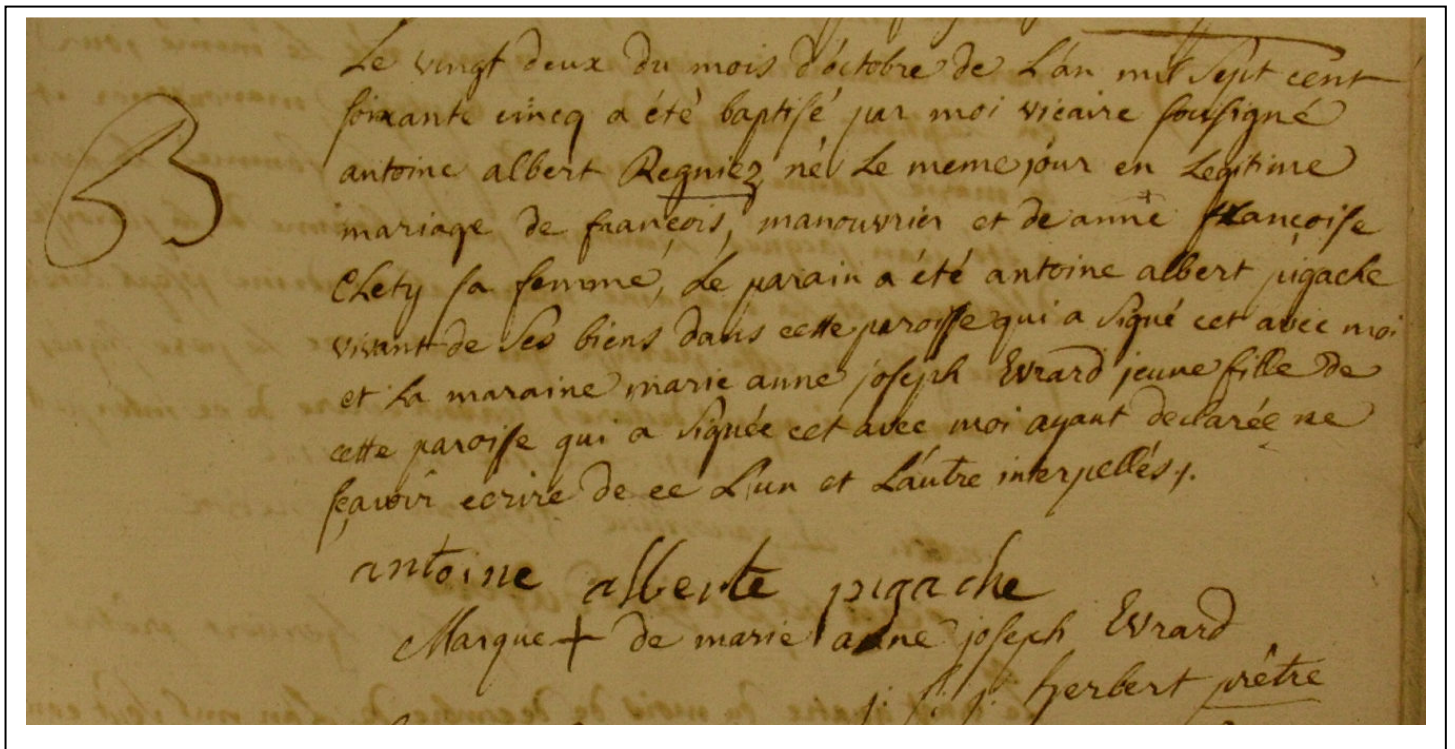 B
Le vingt deux du mois d'octobre de L'an mil Sept cent
soixante cincq a été baptisé par moi vicaire soussigné
antoine albert Regniez né Le meme jour en Legitime
mariage de françois, manouvrier et de anne françoise
Clety sa femme, Le parain a été antoine albert pigache
vivant de Ses biens dans cette paroisse qui a Signé cet avec moi
et La maraine marie anne joseph Evrard jeune fille de
cette paroisse qui a Signée cet avec moi ayant declarée ne
sçavoir ecrire de ce L'un et L'autre interpellés.
antoine alberte pigache
Marque + de marie anne joseph Evrard
j. f. j. herbert prêtre